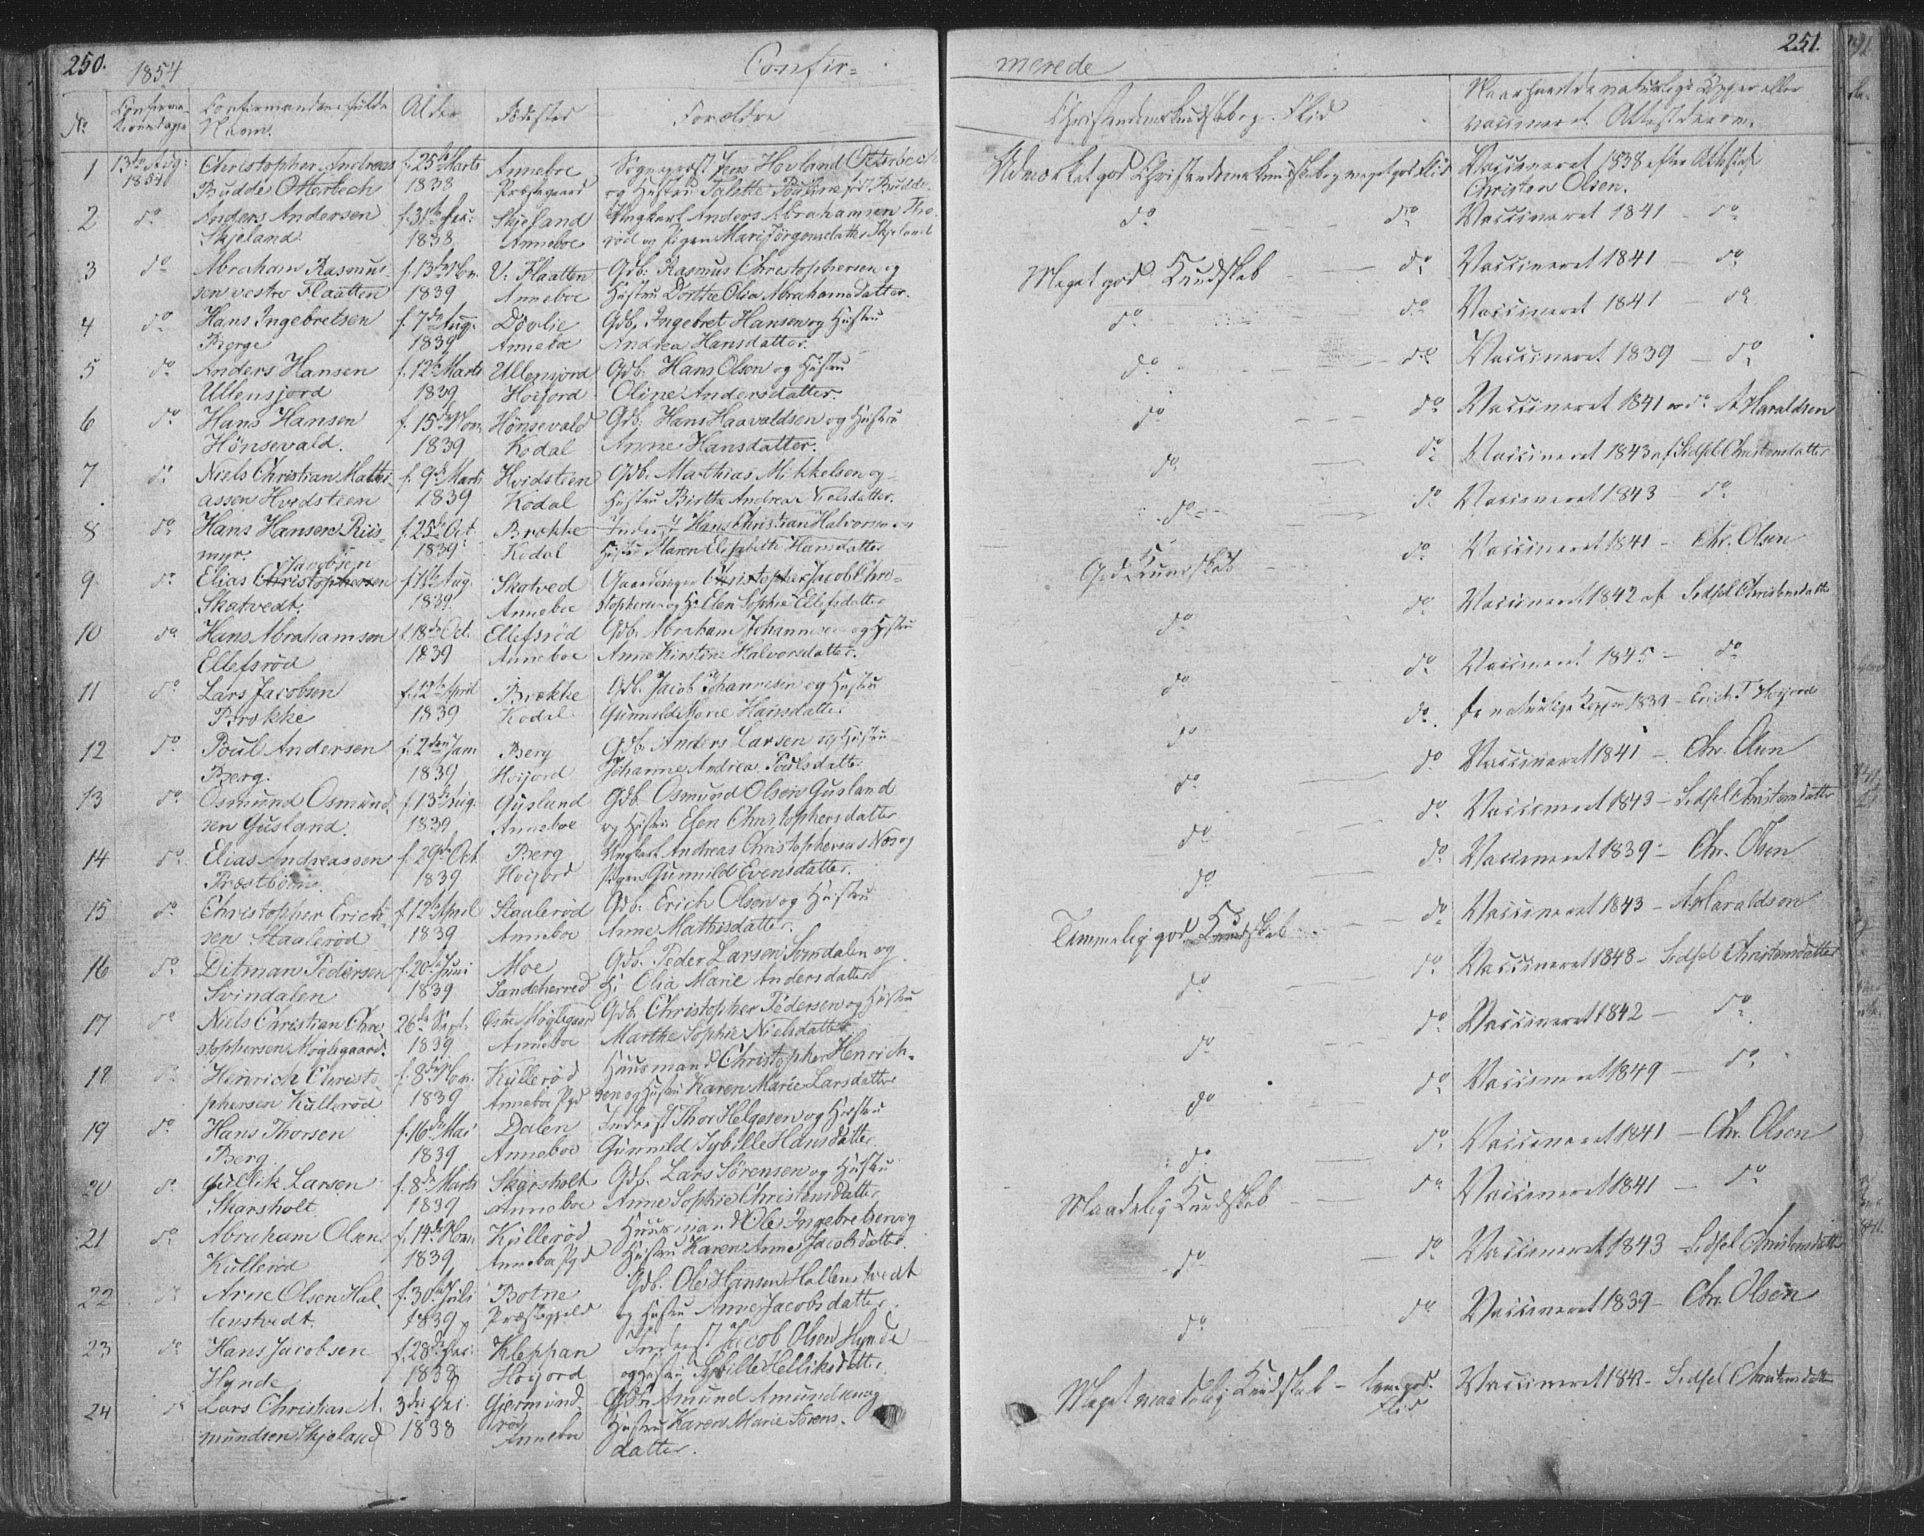 250.
1854
Confir-
No
Confirma-
Confirmandens fulde
Navn.
Alder
Fødested
Forældre
1 13de Aug: 1854 Christopher Andreas f. 25de Marts Annebøe Sogneprest Jens Hovland Otterbech
Budde Otterbech 1838 Præstegaard og Hustru født Budde
2 do Anders Andersen f. 31te Skjeland Ungkarl Anders Abrahamsen
Skjeland 1838 Anneboe og Pigen Mari Jørgensdatter Skjeland
3 do Abraham Rasmus- f. 13de Nov. V. Flaatten Gdb: Rasmus Christophersen og
sen vestre Flaatten 1839 Anneboe Hustru Dorthe Olia Abrahamsdatter.
4 do Hans Ingebretsen f. 7de Aug. Døvlie Gdb. Ingebret Hansen og Hustru
Berge 1839 Anneboe Andrea Hansdatter.
5 do Anders Hansen f. 12te Marts Ullensjord Gdb. Hans Olsen og Hustru
Ullensjord 1839 Hoijord Oline Andersdatter.
6 do Hans Hansen f. 15de Nov. Hønsevald Gdb. Hans Haavaldsen og Hustru
Hønsevald. 1839 Kodal Anne Hansdatter.
7 do Niels Christian Mathi- f. 9de Marts Hvidsteen Gdb. Mathias Mikkelsen og
assen Hvidsteen 1839 Kodal Hustru Birthe Andrea Nielsdatter.
8 do Hans Hansen Riis- f. 25de Oct. Brække Inderst Hans Christian Halvorsen og
myr. 1839 Kodal Hustru Maren Elisabeth Hansdatter
Jacobsen
9 do Elias Christophersen f. 11te Aug. Skotved Gaardbruger Christopher Jacob Chri-
Skatvedt. 1839. Anneboe stophersen og H. Elen Sophie Ellefsdatter
10 do Hans Abrahamsen f. 18de Oct. Ellefsrød Gdb. Abraham Johannesen og Hustru
Ellefsrød 1839 Anneboe Anne Kirstine Halvorsdatter.
11 do Lars Jacobsen f. 12te April Brække Gdb. Jacob Johannesen og Hustru
Brække 1839 Kodal Gunnild Marie Hansdatter
12 do Poul Andersen f. 2den Jan. Berg Gdb. Anders Larsen og Hustru
Berg. 1839 Hoijord Johanne Andrea Poulsdatter
13 do Osmund Osmund- f. 13de Aug. Gusland Gdb. Osmund Olsen Gusland
sen Gusland. 1839 Anneboe og Hustru Elen Christophersdatter
14 do Elias Andreassen f. 29de Oct. Berg Ungkarl Andreas Christophersen Næs og
Præstbøen. 1839 Hoijord Pigen Gunnild Evensdatter.
15 do Christopher Erich- f. 12te April Staalerød Gdb. Erich Olsen og Hustru
sen Staalerød 1839 Anneboe Anne Mathisdatter.
16 do Ditman Pedersen f. 20de Juni Moe Gdb. Peder Larsen Svindalen og
Svindalen 1839 Sandeherred H. Olia Marie Andersdatter
17 do Niels Christian Chri- 26de Sept. Østre Møglegaard Gdb. Christopher Pedersen og Hustru
stophersen Møglegaard. 1839 Anneboe Marthe Sophie Nielsdatter
18 do Henrich Christo- f. 8de Nov. Kullerød Huusmand Christopher Henrich-
phersen Kullerød 1839 Anneboe Pgd sen og Hustru Karen Marie Larsdatter
19 do Hans Thorsen f. 16de Mai Dalen Inderst Thor Helgesen og Hustru
Berg 1839 Anneboe Gunnild Sybille Hansdatter
20 do Gullik Larsen f. 8de Marts Skarsholt Gdb. Lars Sørensen og Hustru
Skarsholt 1839 Anneboe Anne Sophie Christensdatter
21 do Abraham Olsen f. 14de Nov. Kullerød Huusmand Ole Ingebretsen og
Kullerød 1839 Anneboe Pgd Hustru Karen Anne Jacobsdatter.
22 do Arne Olsen Hal- f. 30te Juli Botne Gdb. Ole Hansen Hallenstvedt
lenstvedt. 1839 Præstegjeld og Hustru Anne Jacobsdatter.
23 do Hans Jacobsen f. 28de Kleppan Inderst Jacob Olsen Hynde
Hynde 1838 Hoijord og Hustru Sybille Helliksdatter
24 do Lars Christian A- 3die Gjermund- Gdbr Amund Amundsen og
mundsen Skjeland 1838 rød Anneboe Hustru Karen Marie Sørens-
datter.
251.
merede
Christendomskundskab og Flid
Naar havde naturlige Kopper eller
vaccineret. Attest derom.
Udmærket god Christendomskundskab og meget god Flid Vaccineret 1838 efter Attest af
Christen Olsen.
do do Vaccineret 1841 do
Meget god Kundskab do Vaccineret 1841 do
do do Vaccineret 1841 do
do do Vaccineret 1839 do
do do Vaccineret 1841 A Haraldsen
do do Vaccineret 1843 af Sidsel Christensdatter
do do Vaccineret 1843 do
God Kundskab do Vaccineret 1841 Chr. Olsen
do do Vaccineret 1842 af Sidsel Christensdatter
do do Vaccineret 1845 do
do do. naturlige Kopper 1839 Erich T. Hoijord
do do Vaccineret 1841 Chr. Olsen
do do Vaccineret 1843 Sidsel Christensdatter
do do Vaccineret 1839 Chr. Olsen
Temmelig god Kundskab do Vaccineret 1843 A Haraldsen
do do Vaccineret 1848 Sidsel Christensdatter
do do Vaccineret 1842 do
do do Vaccineret 1849 do
do do Vaccineret 1841 Chr. Olsen
Maadelig Kundskab do Vaccineret 1841 do
do do Vaccineret 1843 Sidsel Christensdatter
do do Vaccineret 1839 Chr. Olsen
Meget maadelig Kundskab - god Flid Vaccineret 1842 - Sidsel Christensdatter